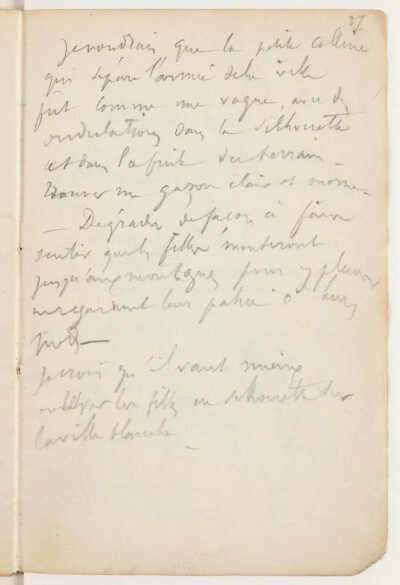 37
Je voudrais que la petite colline
qui sépare l'armée de la ville
fût comme une vague, avec des
ondulations dans la silhouette
et dans la fuite du terrain —
Trouver un gazon clair et morne —
— Dégrader de façon à faire
sentir que les filles monteront
jusqu'aux montagnes pour y pleurer
en regardant leur patrie à leurs
pieds —
Je crois qu'il vaut mieux
enlever les filles en silhouette sur
la ville blanche